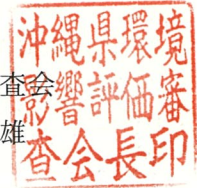 沖縄県環境
影響評価審
査会長印
査会
雄